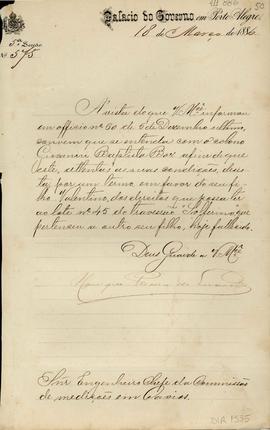 Palacio do Governo em Porto Alegre,
18 de Março de 1886
50
Nº 575
A' vista do que Vmcê informou
em officio nº 90 de 9 de Dezembro ultimo,
convem que se entenda com o colono
Baptista afim de que
este, attentas as suas condições, desis-
ta, por um termo, em favor de seu fi-
lho Valentino, dos direitos que possa ter
ao lote nº 45 do travessão que
pertenceu a outro seu filho, hoje fallecido.
Deus Guarde a Vmcê
Snr Engenheiro Chefe da Commissão
de medições em Caxias.
DIA 1535